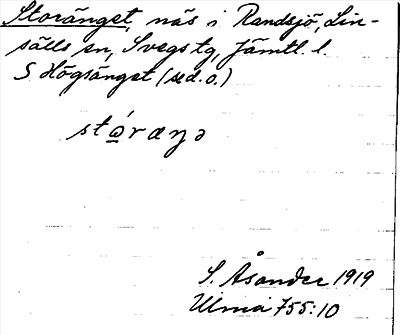 Storänget, näs i Randsjö, Lin-
sälls sn, Svegs tg, Jämtl. l.
S Högsänget (se d.o.)
stáraŋə
S. Åsander 1919
Ulma 755:10